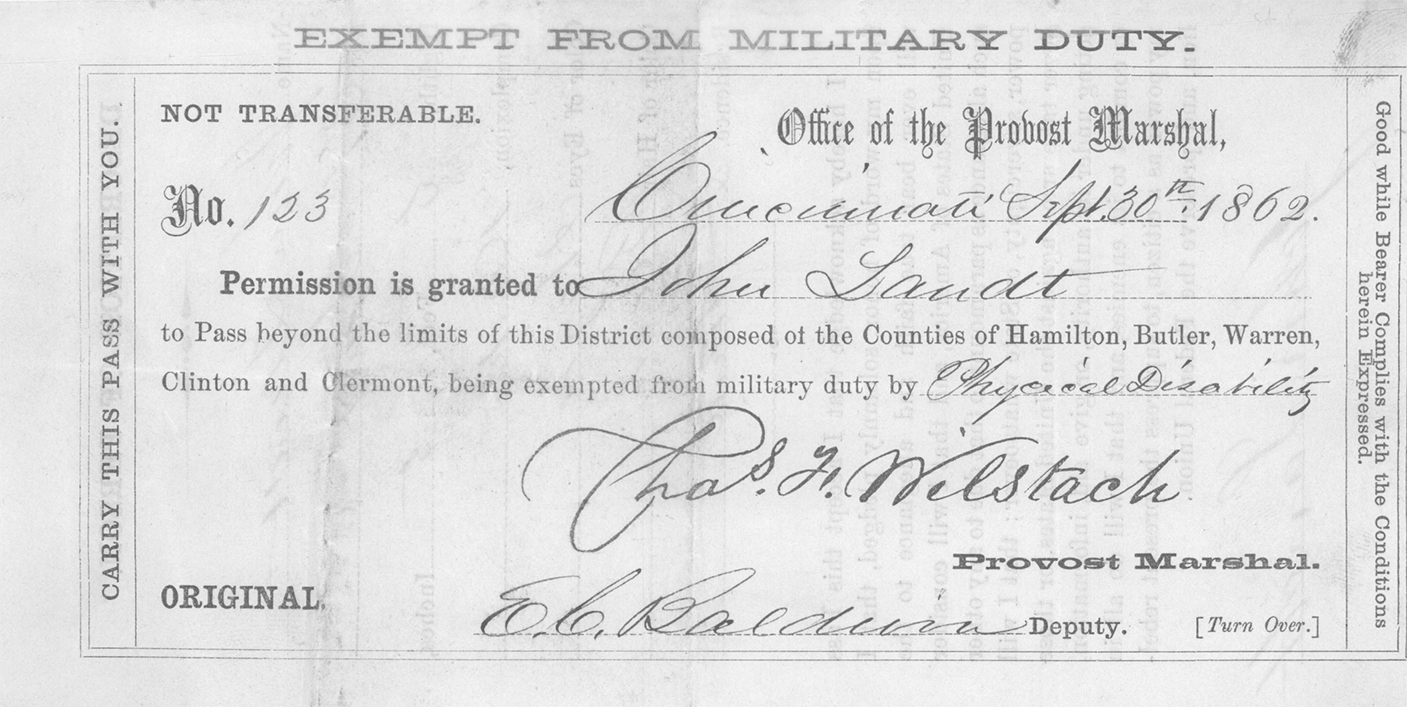 EXEMPT FROM MILITARY DUTY.
CARRY THIS PASS WITH YOU.
NOT TRANSFERABLE.
Office of the Provost Marshal,
No. 123
Cincinnati Sept. 30th. 1862.
Permission is granted to John Sandt
to Pass beyond the limits of this District composed of the Counties of Hamilton, Butler, Warren,
Clinton and Clermont, being exempted from military duty by Physical Disability
Chas. F. Wilstach
Provost Marshal.
ORIGINAL.
E. C. Baldwin Deputy.
[Turn Over.]
Good while Bearer Complies with the Conditions
herein Expressed.